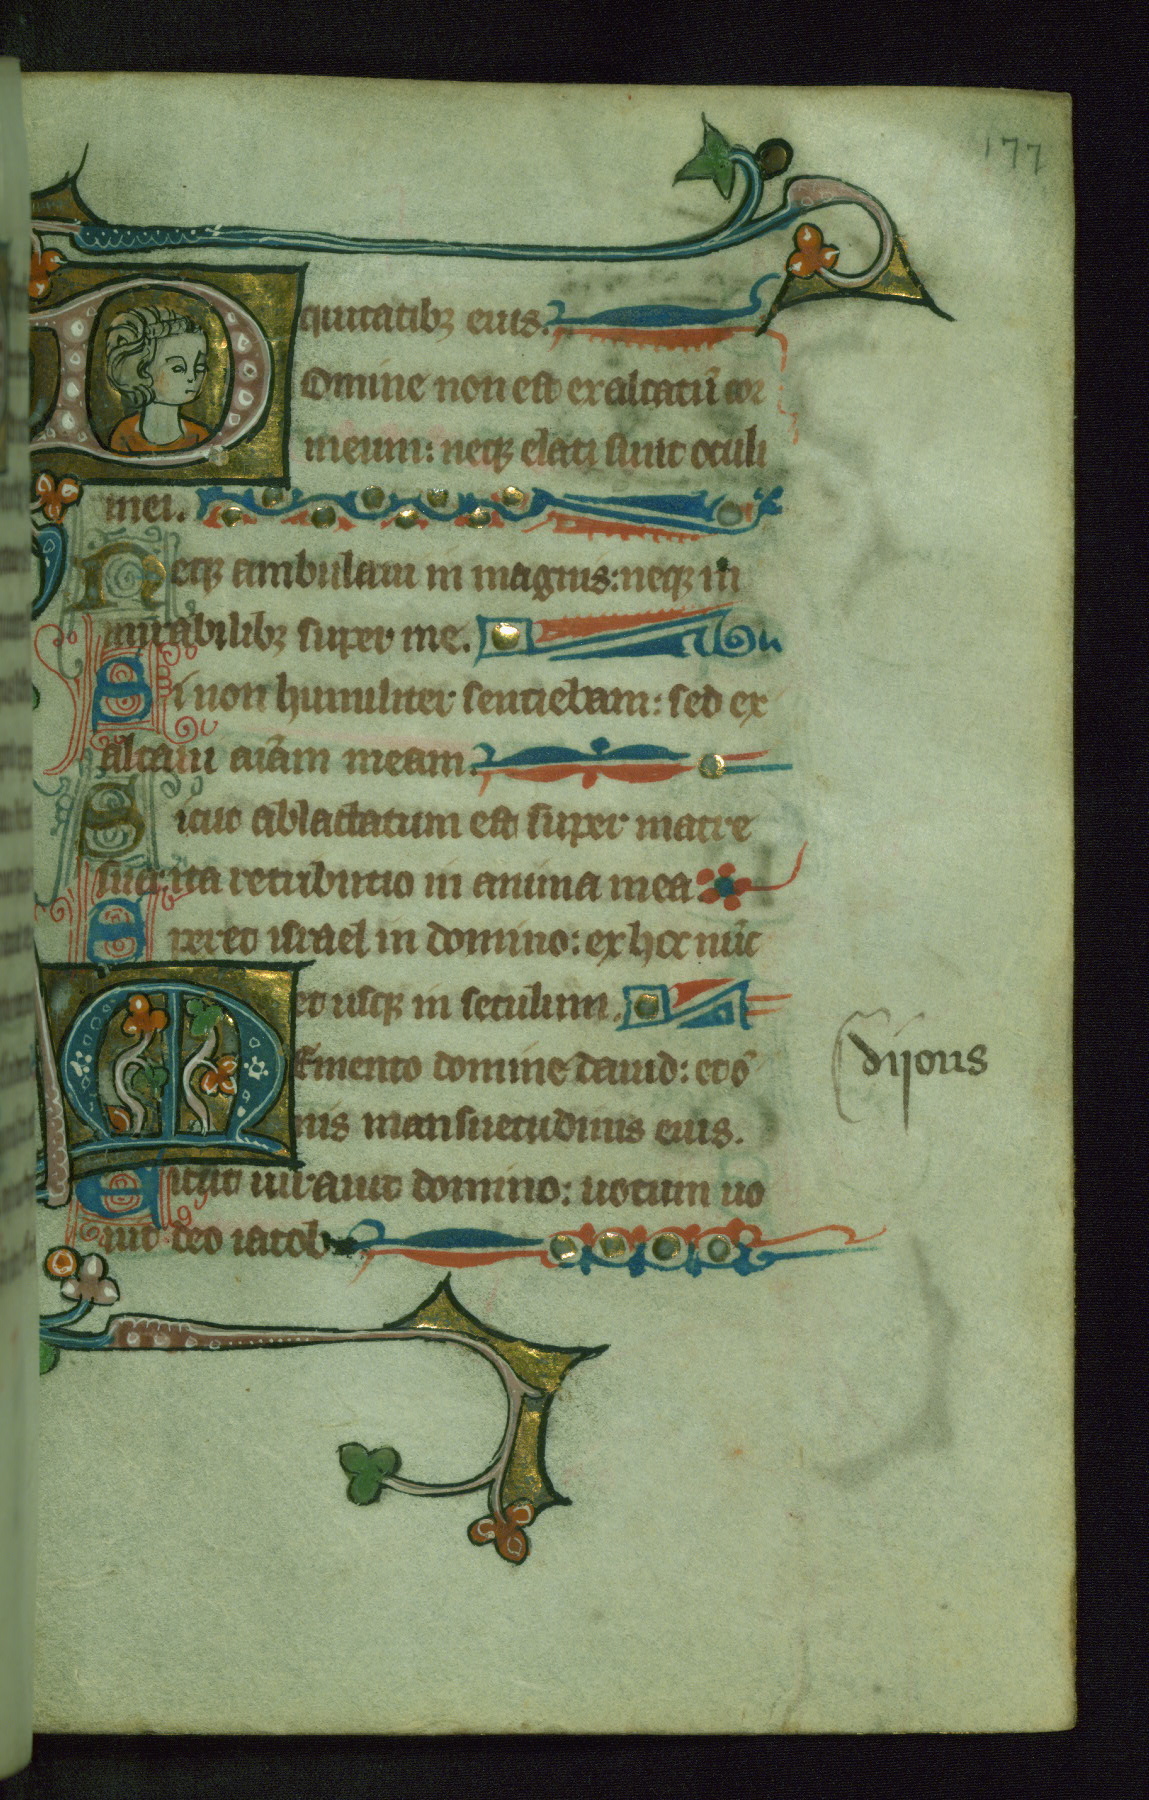 177
quitatibꝫ eius.
Domine non est exaltatū cor
meum: neqꝫ elati sunt oculi
mei.
Neqꝫ ambulaui in magnis: neqꝫ in
mirabilibꝫ super me.
Si non humiliter sentiebam: sed ex
altaui aīam meam.
Sicut ablactatum est super matre
sua: ita retributio in anima mea
Speret israel in domino: ex hoc nūc
et usqꝫ in seculum.
MEmento domine dauid: et ō
nis mansuetudinis eius.
Sicut iurauit domino: uotum uo
uit deo iacob